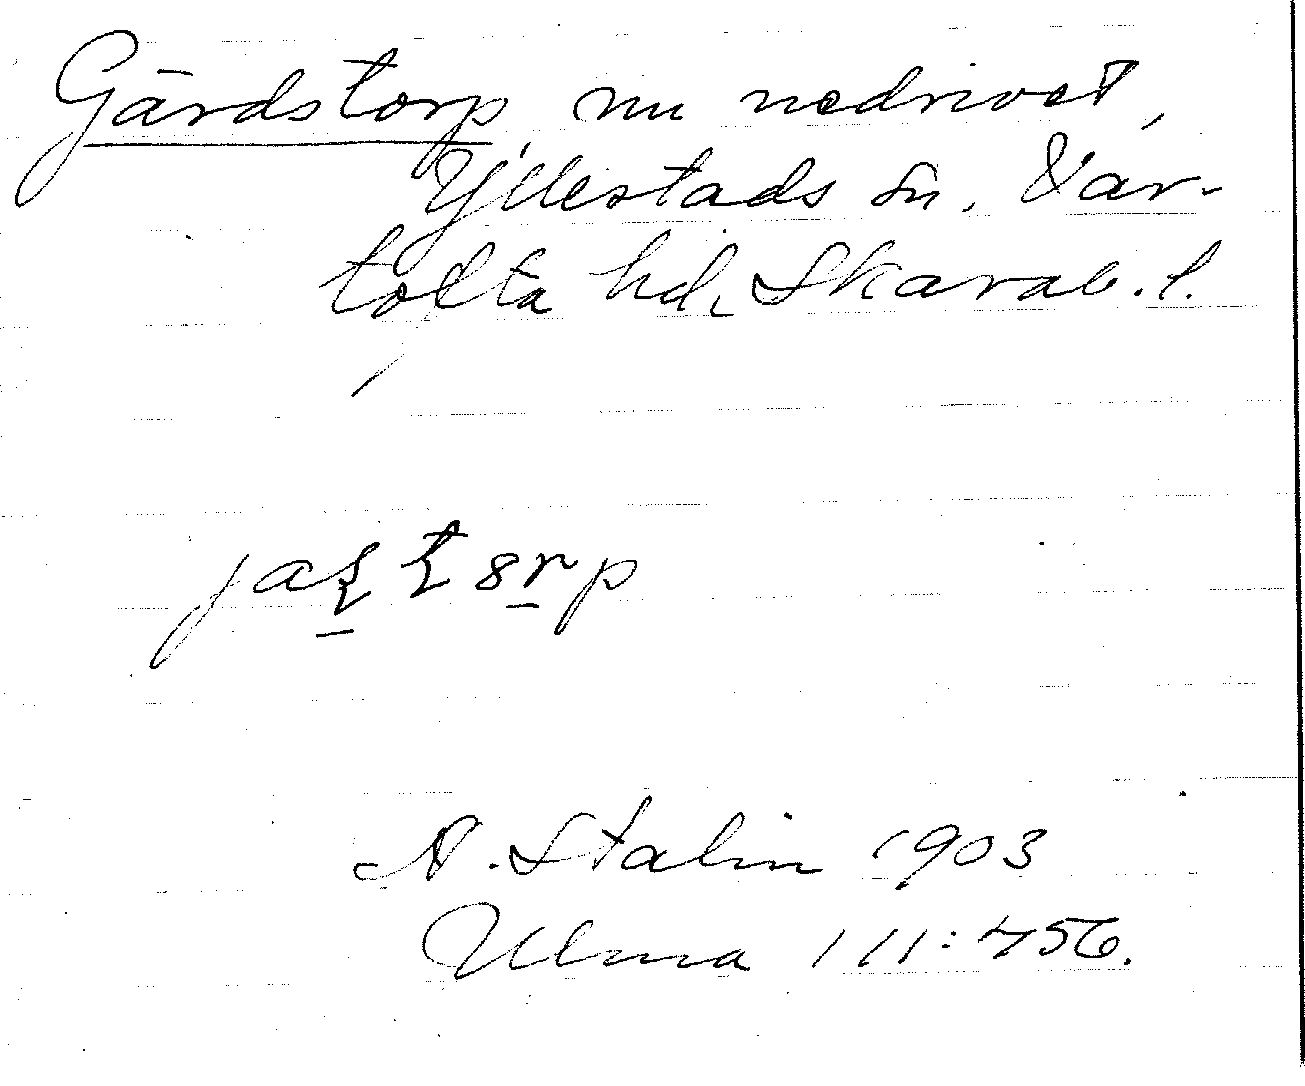 Gärdstorp, nu nedrivet,
Yllestads sn, Var-
tofta hd, Skarab. l.
A. Stalin 1903
Ulma 111:456.